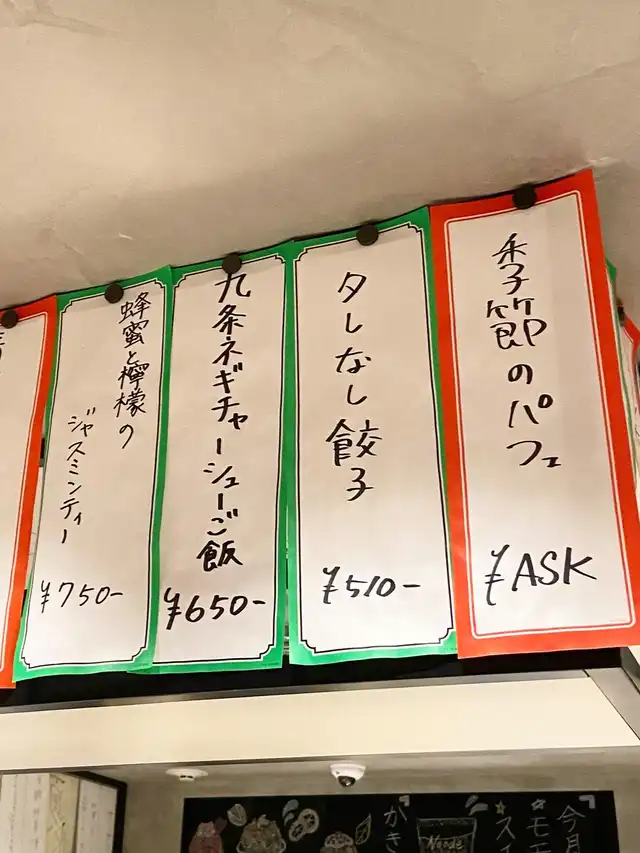 季節のパフェ
¥ASK
タレなし餃子
¥510-
九条ネギチャーシューご飯
¥650-
蜂蜜と檸檬の
ジャスミンティー
¥750-
かき
Noode